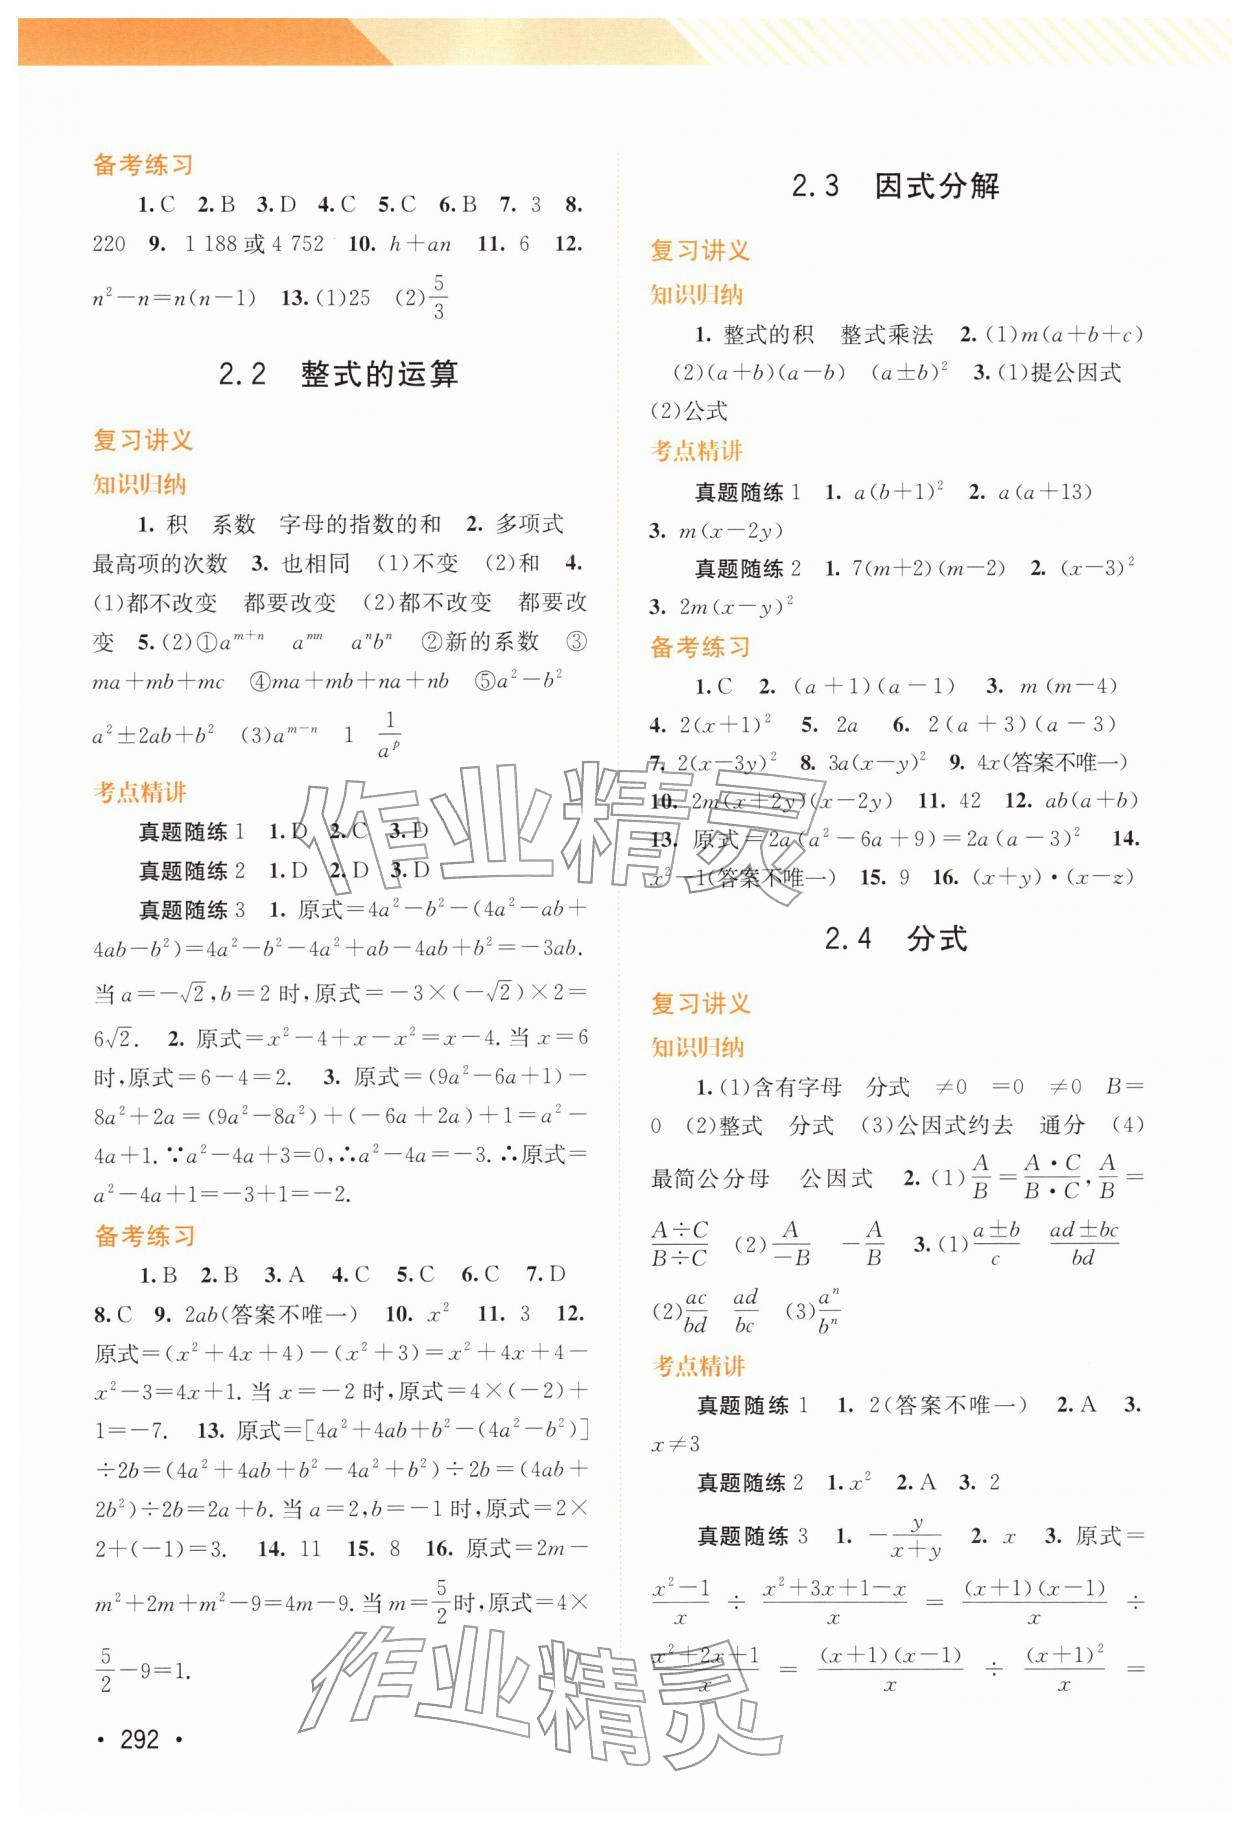 备考练习
1. C 2. B 3. D 4. C 5. C 6. B 7. 3 8.
220 9. 1 188或4 752 10. h+an 11. 6 12.
n²-n=n(n-1) 13. (1)25 (2)5/3
2.2 整式的运算
复习讲义
知识归纳
1. 积 系数 字母的指数的和 2. 多项式
最高项的次数 3. 也相同 (1)不变 (2)和 4.
(1)都不改变 都要改变 (2)都不改变 都要改
变 5. (2)①aᵐ⁺ⁿ aᵐⁿ aⁿbⁿ ②新的系数 ③
ma+mb+mc ④ma+mb+na+nb ⑤a²-b²
a²±2ab+b² (3)aᵐ⁻ⁿ 1 1/aᵖ
考点精讲
真题随练1 1. D 2. C 3. D
真题随练2 1. D 2. D 3. D
真题随练3 1. 原式=4a²-b²-(4a²-ab+
4ab-b²)=4a²-b²-4a²+ab-4ab+b²=-3ab.
当a=-√2,b=2时,原式=-3×(-√2)×2=
6√2. 2. 原式=x²-4+x-x²=x-4. 当x=6
时,原式=6-4=2. 3. 原式=(9a²-6a+1)-
8a²+2a=(9a²-8a²)+(-6a+2a)+1=a²-
4a+1. ∵a²-4a+3=0,∴a²-4a=-3. ∴原式=
a²-4a+1=-3+1=-2.
备考练习
1. B 2. B 3. A 4. C 5. C 6. C 7. D
8. C 9. 2ab(答案不唯一) 10. x² 11. 3 12.
原式=(x²+4x+4)-(x²+3)=x²+4x+4-
x²-3=4x+1. 当x=-2时,原式=4×(-2)+
1=-7. 13. 原式=[4a²+4ab+b²-(4a²-b²)]
÷2b=(4a²+4ab+b²-4a²+b²)÷2b=(4ab+
2b²)÷2b=2a+b. 当a=2,b=-1时,原式=2×
2+(-1)=3. 14. 11 15. 8 16. 原式=2m-
m²+2m+m²-9=4m-9. 当m=5/2时,原式=4×
5/2-9=1.
• 292 •
2.3 因式分解
复习讲义
知识归纳
1. 整式的积 整式乘法 2. (1)m(a+b+c)
(2)(a+b)(a-b) (a±b)² 3. (1)提公因式
(2)公式
考点精讲
真题随练1 1. a(b+1)² 2. a(a+13)
3. m(x-2y)
真题随练2 1. 7(m+2)(m-2) 2. (x-3)²
3. 2m(x-y)²
备考练习
1. C 2. (a+1)(a-1) 3. m(m-4)
4. 2(x+1)² 5. 2a 6. 2(a+3)(a-3)
7. 2(x-3y)² 8. 3a(x-y)² 9. 4x(答案不唯一)
10. 2m(x+2y)(x-2y) 11. 42 12. ab(a+b)
13. 原式=2a(a²-6a+9)=2a(a-3)² 14.
x²-1(答案不唯一) 15. 9 16. (x+y)·(x-z)
2.4 分式
复习讲义
知识归纳
1. (1)含有字母 分式 ≠0 =0 ≠0 B=
0 (2)整式 分式 (3)公因式约去 通分 (4)
最简公分母 公因式 2. (1)A/B=A·C/B·C,A/B=
A÷C/B÷C (2)A/-B -A/B 3. (1)a±b/c ad±bc/bd
(2)ac/bd ad/bc (3)aⁿ/bⁿ
考点精讲
真题随练1 1. 2(答案不唯一) 2. A 3.
x≠3
真题随练2 1. x² 2. A 3. 2
真题随练3 1. -y/x+y 2. x 3. 原式=
x²-1/x ÷ x²+3x+1-x/x = (x+1)(x-1)/x ÷
x²+2x+1/x = (x+1)(x-1)/x ÷ (x+1)²/x =
作业精灵
作业精灵